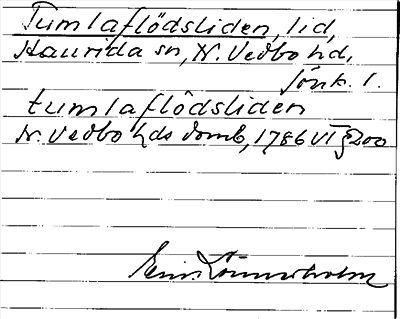 Tumlaflödsliden, lid,
Haurida sn, N. Vedbo hd,
Jönk. l.
tumlaflödsliden
N. Vedbo hds domb, 1786 VI § 200